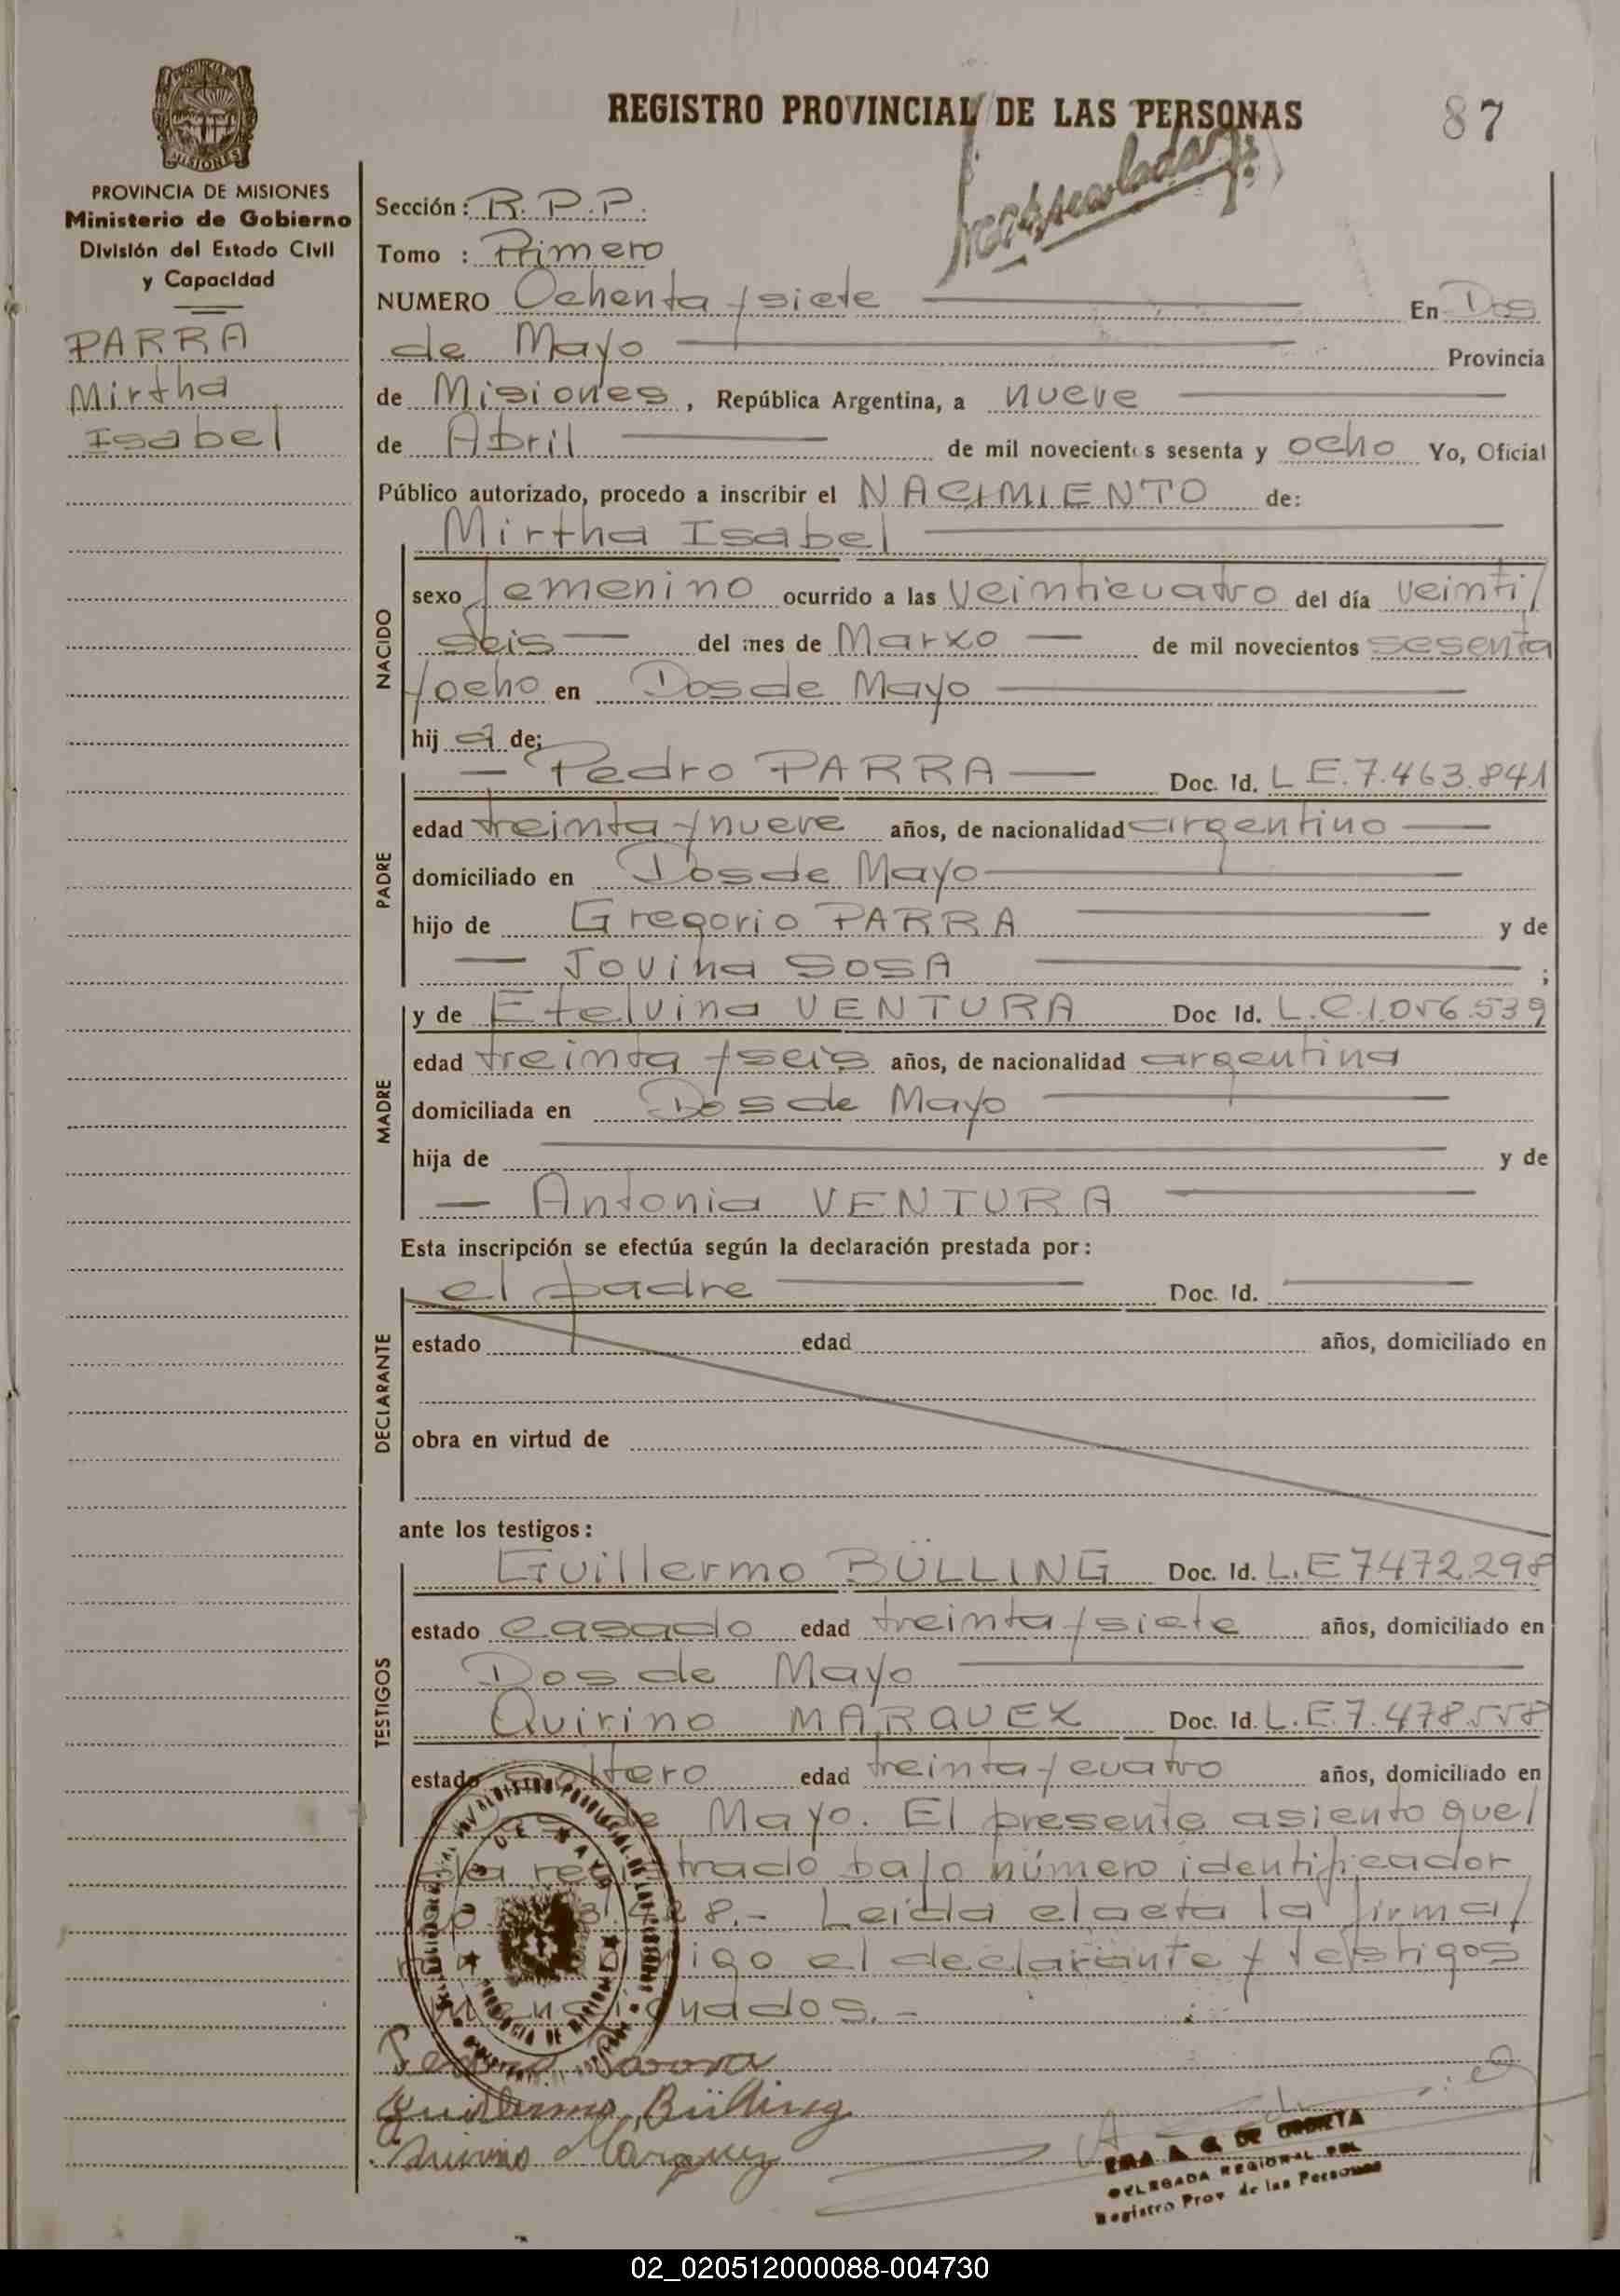 REGISTRO PROVINCIAL DE LAS PERSONAS
87
MISIONES
PROVINCIA DE MISIONES
Ministerio de Gobierno
División del Estado Civil
y Capacidad
PARRA
Mirtha
Isabel
Sección: R. P. P.
Tomo : Primero
NUMERO Ochenta y siete En Dos
de Mayo Provincia
de Misiones, República Argentina, a nueve
de Abril de mil novecientos sesenta y ocho Yo, Oficial
Público autorizado, procedo a inscribir el NACIMIENTO de:
Mirtha Isabel
NACIDO
sexo femenino ocurrido a las veinticuatro del día veinti/
seis del mes de Marzo de mil novecientos sesenta
y ocho en Dos de Mayo
hij a de:
PADRE
Pedro PARRA Doc. Id. L E. 7.463.841
edad treinta y nueve años, de nacionalidad argentino
domiciliado en Dos de Mayo
hijo de Gregorio PARRA y de
Jovina SOSA ;
MADRE
y de Etelvina VENTURA Doc Id. L.C.1.056.539
edad treinta y seis años, de nacionalidad argentina
domiciliada en Dos de Mayo
hija de y de
Antonia VENTURA
Esta inscripción se efectúa según la declaración prestada por:
DECLARANTE
el padre Doc. Id.
estado edad años, domiciliado en
obra en virtud de
ante los testigos:
TESTIGOS
Guillermo BÜLLING Doc. Id. L.E 7472.298
estado casado edad treinta y siete años, domiciliado en
Dos de Mayo
Quirino MARQUEZ Doc. Id. L.E. 7.478.558
estado soltero edad treinta y cuatro años, domiciliado en
Dos de Mayo. El presente asiento que/
da registrado bajo número identificador
8.- Leída el acta la firma/
igo el declarante y testigos
mensionados.-
Pedro Parra
Guillermo Bülling
Quirino Marquez
DELEGADA REGIONAL DEL
Registro Prov. de las Personas
02_020512000088-004730